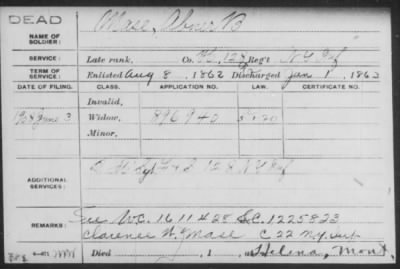 DEAD
NAME OF SOLDIER: Mase, Abner B
SERVICE: Late rank, Co. H, 128 Reg't N Y Inf
TERM OF SERVICE: Enlisted Aug 8, 1862 Discharged Jan 1, 1863
DATE OF FILING. CLASS. APPLICATION NO. LAW. CERTIFICATE NO.
Invalid,
June 3 Widow, 896940
Minor,
ADDITIONAL SERVICES: 128 N Y Inf
REMARKS: See W.C. 1611428 S.C. 1225823
Clarence W. Mase C 22 N.Y. Inf
Died , 1 , at Helena, Mont.